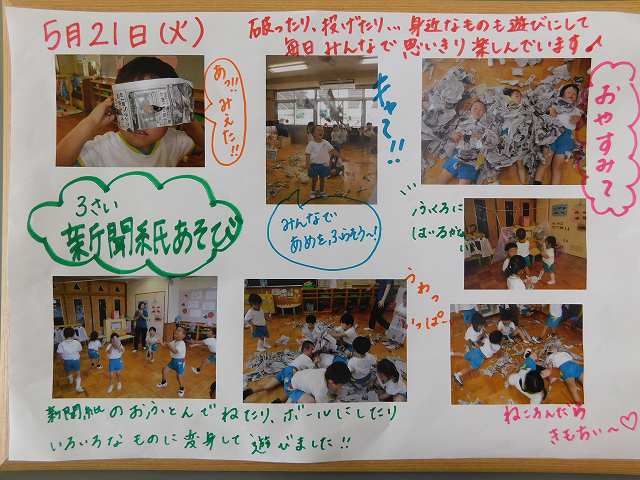 5月21日(火)
破ったり、投げたり… 身近なものも遊びにして
毎日 みんなで 思いきり 楽しんでいます♪
あっ!! みえた!!
キャー!!
おやすみ〜
3さい
新聞紙あそび
みんなで
あめを、ふらそう〜!
ふくろに
うわっ
いっぱ〜
新聞紙のおふとんで ねたり、ボールにしたり
いろいろなものに変身して 遊びました!!
ねころんだら
きもちい〜♡